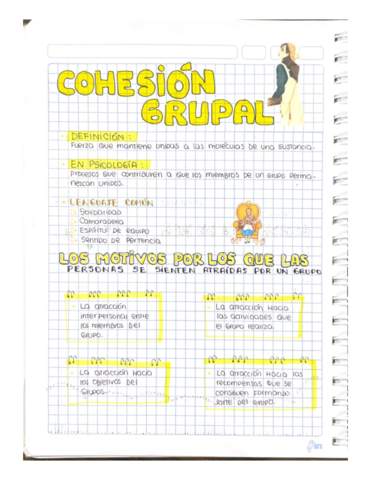 COHESIÓN
GRUPAL
· DEFINICIÓN:
Fuerza que mantiene unidas a las moléculas de una sustancia.
· EN PSICOLOGÍA:
Procesos que contribuyen a que los miembros de un grupo perma-
nezcan unidos.
· LENGUAJE COMÚN
- Solidaridad
- Camaradería
- Espíritu de equipo
- Sentido de pertencia
LOS MOTIVOS POR LOS QUE LAS
PERSONAS SE SIENTEN ATRAÍDAS POR UN GRUPO
· La atracción
interpersonal entre
los miembros del
grupo.
· La atracción hacia
las actividades que
el grupo realiza.
· La atracción hacia
los objetivos del
grupo.
· La atracción hacia las
recompensas que se
consiguen formando
parte del grupo.